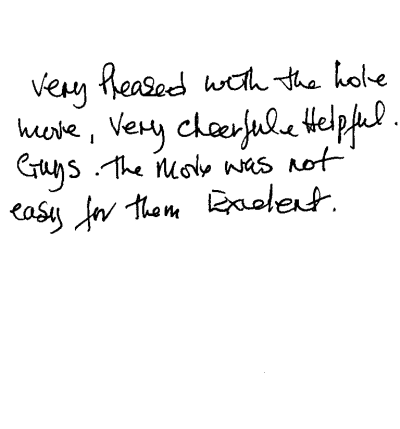 Very Pleased with the hole
move, Very cheerful & Helpful.
Guys. The Move was not
easy for them Excelent.